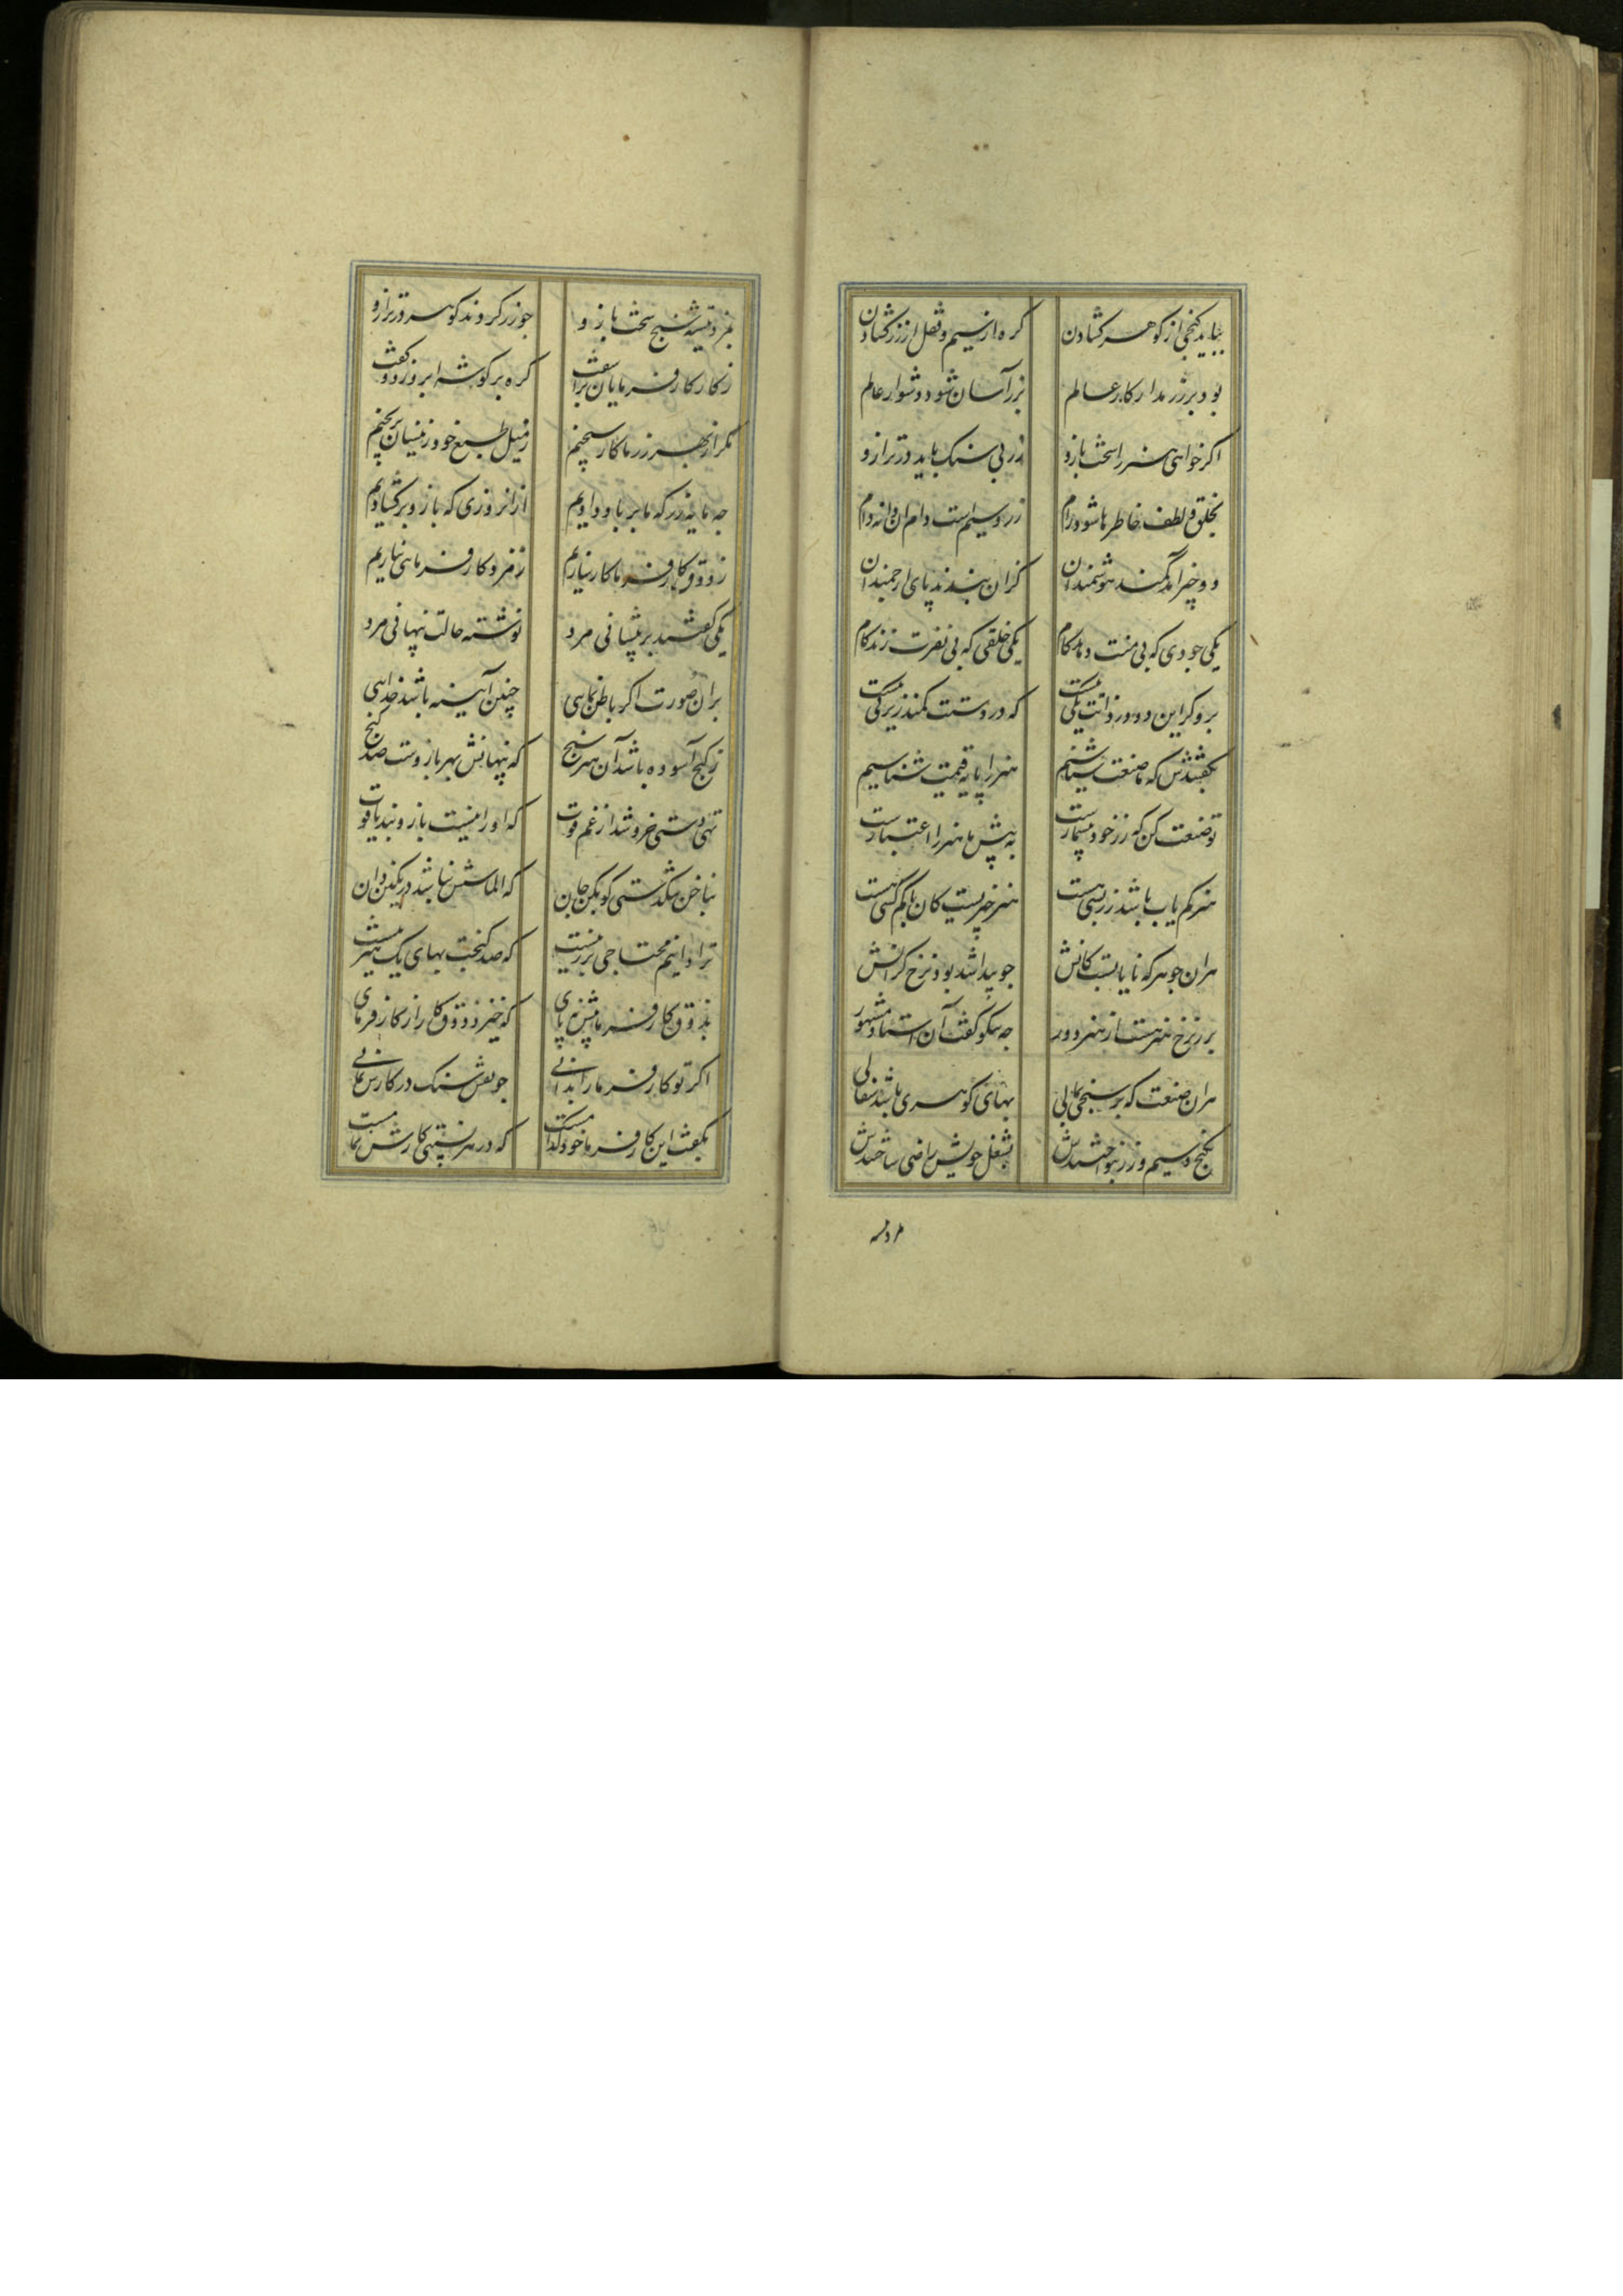 بباید گنجی از گوهر گشادن گره از سیم و قفل از زر گشادن
بود بر زر مدار کار عالم بزر آسان شود دشوار عالم
اگر خواهی هنر را سخت بازو زر بی سنک باید در ترازو
بخلق و لطف خاطرها شود رام زر و سیم است دام آن دانه دام
دو چیز آمد کمند هوشمندان کزان بندند پای ارجمندان
یکی جودی که بی منت دهد کام یکی خلقی که بی نفرت زند کام
برو کر این دو در ذاتت یکی نیست که در دستت کمند زیرکی نیست
بگفتندش که ما صنعت شناسیم هنر را پایه قیمت شناسیم
تو صنعت کن که زر خود بیشمارست به پیش ما هنر را اعتبارست
هنر کم یاب باشد زر بسی هست هنر چیزیست کان با کم کسی هست
هران جوهر که نایابست کانش جو پیدا شد بود نرخ گرانش
بر نرخ هنر هست از هنر دور چه نیکو گفت آن استاد مشهور
هران صنعت که بر سنجی بمالی بهای گوهری باشد سفالی
بگنج و سیم و زر بنواختندش بشغل خویش راضی ساختندش
هنرور تیشه
بمزد تیشه سنج سخت بازو جو زر کردند گوهر در ترازو
ز کار کارفرمایان برآشفت گره بر گوشه ابرو زد و گفت
مگر از بهر زر ما کار سنجیم ز میل طبع خود زینسان برنجیم
چه مایه زر که ما بر باد دادیم از آن روزی که بازو برگشادیم
ز ذوق کارفرما کار سازیم ز مزد کارفرما بی نیازیم
یکی گفتند بر پیشانی مرد نوشته حالت پنهانی مرد
بران صورت اگر باطن نماهی چنین آیینه باشد خداهی
ز گنج آسوده باشد آن هنر سنج که پنهانش بهر بازوست صد گنج
تهی دستی خروشد از غم قوت که او را نیست بازوبند یاقوت
بناخن سنگ دستی گو بکن جان که الماسش نباشد در نگین دان
ترا دانیم محتاجی بزر نیست که صد گنجت بهای یک هنر نیست
بذوق کارفرما پیش نه پای که خیزد ذوق کار از کارفرمای
اگر تو کارفرما را بدانی جو نقش سنک در کارش بمانی
بگفت این کارفرما خود کدامست که در هر نسبتی کارش تمامست